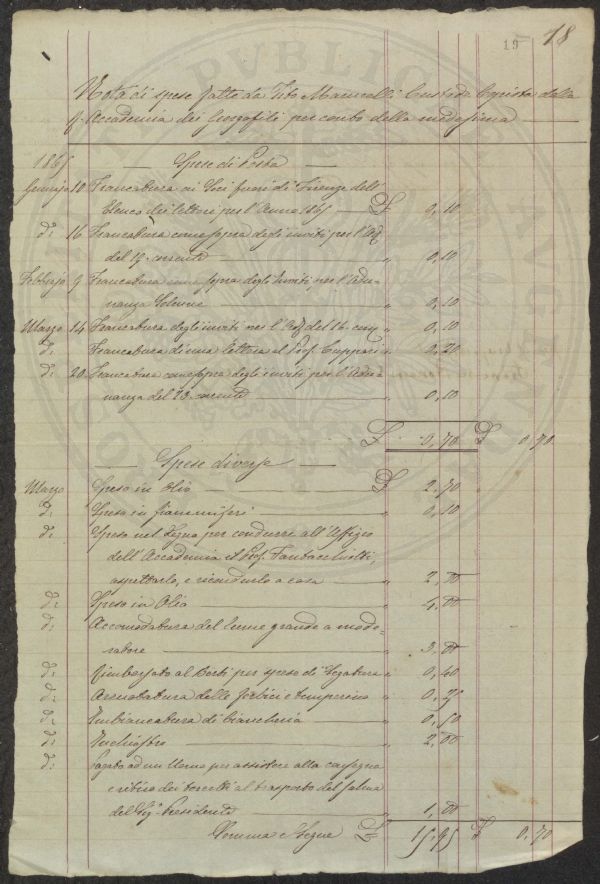 15 18
Nota di spese fatte da Tito Marucelli Custode Copista della
R. Accademia dei Georgofili per conto della medesima
1865 Spese di Posta
Gennajo 10 Francatura ai Soci fuori di Firenze dell'
Elenco dei lettori per l'Anno 1865 £ 0,10
d: 16 Francatura come sopra degli inviti per l'Adza
del 19 corrente " 0,10
Febbrajo 9 Francatura come sopra degli Inviti per l'Adu-
nanza Solenne " 0,10
Marzo 14 Francatura degli inviti per l'Adza del 16 corre " 0,10
d: Francatura di una lettera al Prof. Cuppari " 0,20
d: 20 Francatura come sopra degli inviti per l'Adu-
nanza del 23 corrente " 0,10
£ 0,70 £ 0,70
Spese diverse
Marzo Spese in Olio £ 2,70
d: Spese in fiammiferi " 0,10
d: Spese nel Legno per condurre all'Uffizio
dell'Accademia il Prof.
aspettarlo, e ricondurlo a casa " 2,00
d: Spese in Olio " 4,00
d: Accomodatura del lume grande a mode-
ratore " 3,00
d: Rimborsato al Borbi per spese di legatura " 0,40
d: Arruotatura delle forbici e temperino " 0,25
d: Imbiancatura di biancheria " 0,50
d: Inchiostro " 2,00
d: Pagato ad un Uomo per assistere alla consegna
e ritiro dei torcetti al trasporto del salma
del Sigr. Presidente " 1,00
Somma e Segue £ 15,95 £ 0,70